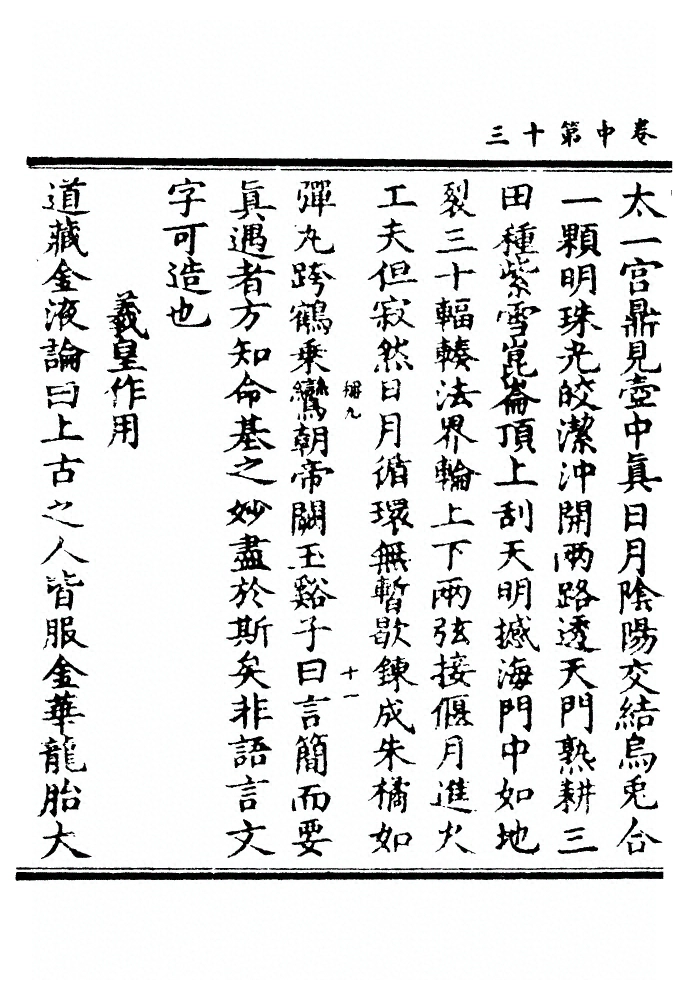 卷中第十三
太一宮鼎見壺中眞日月陰陽交結烏兎合
一顆明珠光皎潔沖開兩路透天門熟耕三
田種紫雪崑崙頂上刮天明撼海門中如地
裂三十輻輳法界輪上下兩弦接偃月進火
工夫但寂然日月循環無暫歇鍊成朱橘如
彈丸跨鶴乘鸞朝帝闕玉谿子曰言簡而要
眞遇者方知命基之妙盡於斯矣非語言文
字可造也
羲皇作用
道藏金液論曰上古之人皆服金華龍胎大
弱九
十一